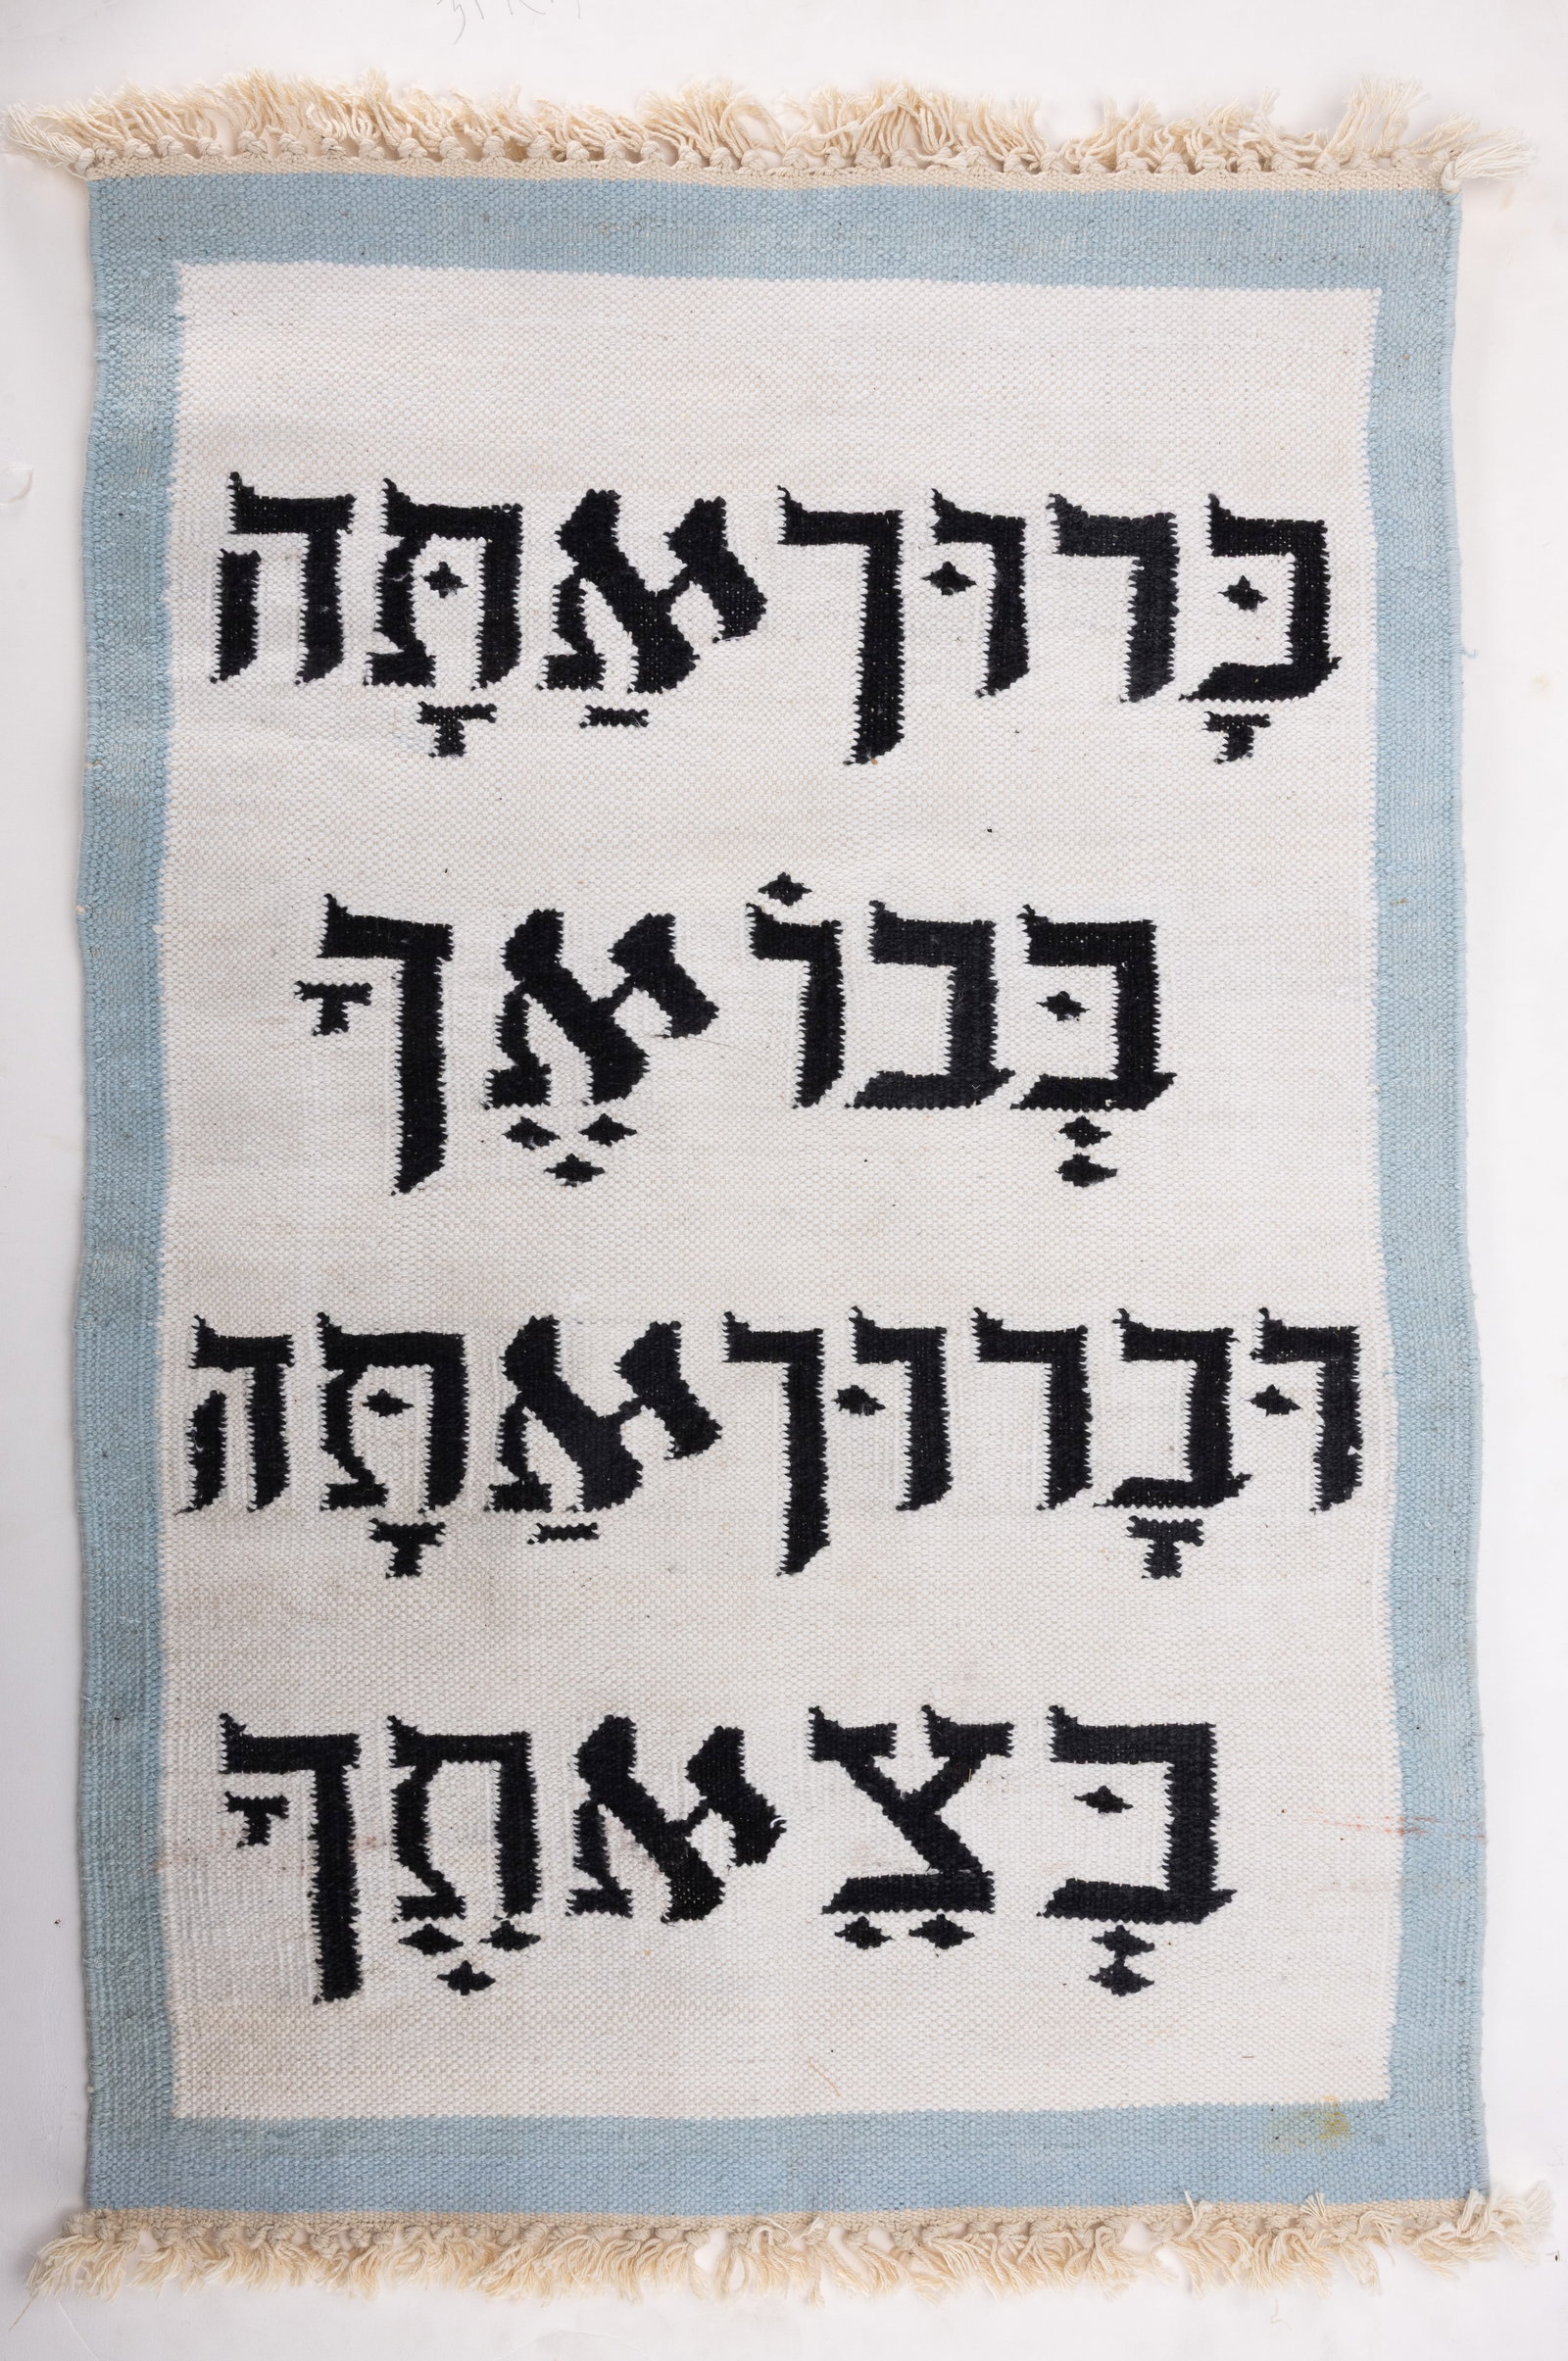 בָּרוּךְ אַתָּה
בְּבוֹאֶךָ
וּבָרוּךְ אַתָּה
בְּצֵאתֶךָ